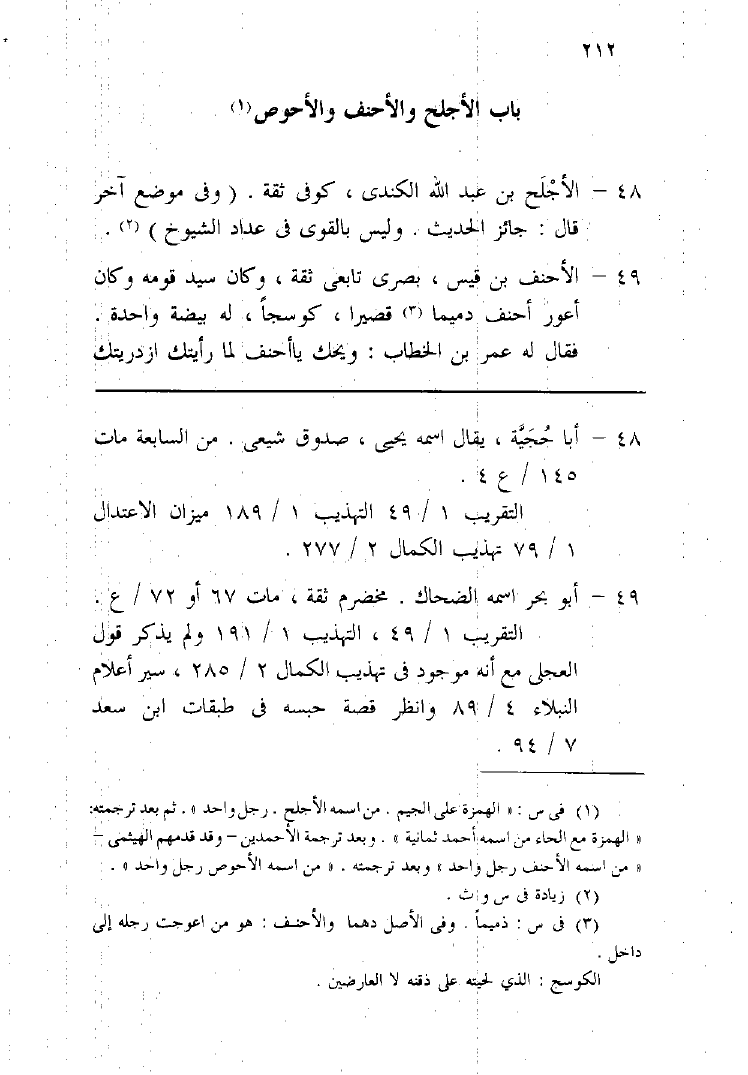 ٢١٢
باب الأجلح والأحنف والأحوص (١)
٤٨ – الأَجْلَح بن عبد الله الكندى ، كوفى ثقة . ( وفى موضع آخر
قال : جائز الحديث . وليس بالقوى فى عداد الشيوخ ) (٢) .
٤٩ – الأحنف بن قيس ، بصرى تابعى ثقة ، وكان سيد قومه وكان
أعور أحنف دميما (٣) قصيرا ، كوسجاً ، له بيضة واحدة .
فقال له عمر بن الخطاب : ويحك ياأحنف لما رأيتك ازدريتك
٤٨ – أبا حُجَيَّة ، يقال اسمه يحيى ، صدوق شيعى . من السابعة مات
١٤٥ / ع ٤ .
التقريب ١ / ٤٩ التهذيب ١ / ١٨٩ ميزان الاعتدال
١ / ٧٩ تهذيب الكمال ٢ / ٢٧٧ .
٤٩ – أبو بحر اسمه الضحاك . مخضرم ثقة ، مات ٦٧ أو ٧٢ / ع .
التقريب ١ / ٤٩ ، التهذيب ١ / ١٩١ ولم يذكر قول
العجلى مع أنه موجود فى تهذيب الكمال ٢ / ٢٨٥ ، سير أعلام
النبلاء ٤ / ٨٩ وانظر قصة حبسه فى طبقات ابن سعد
٧ / ٩٤ .
(١) فى س : « الهمزة على الجيم . من اسمه الأجلح . رجل واحد » . ثم بعد ترجمته:
« الهمزة مع الحاء من اسمه أحمد ثمانية » . وبعد ترجمة الأحمدين – وقد قدمهم الهيثمى –
« من اسمه الأحنف رجل واحد » وبعد ترجمته . « من اسمه الأحوص رجل واحد » .
(٢) زيادة فى س و ث .
(٣) فى س : ذميماً . وفى الأصل دهما والأحنف : هو من اعوجت رجله إلى
داخل .
الكوسج : الذي لحيته على ذقنه لا العارضين .